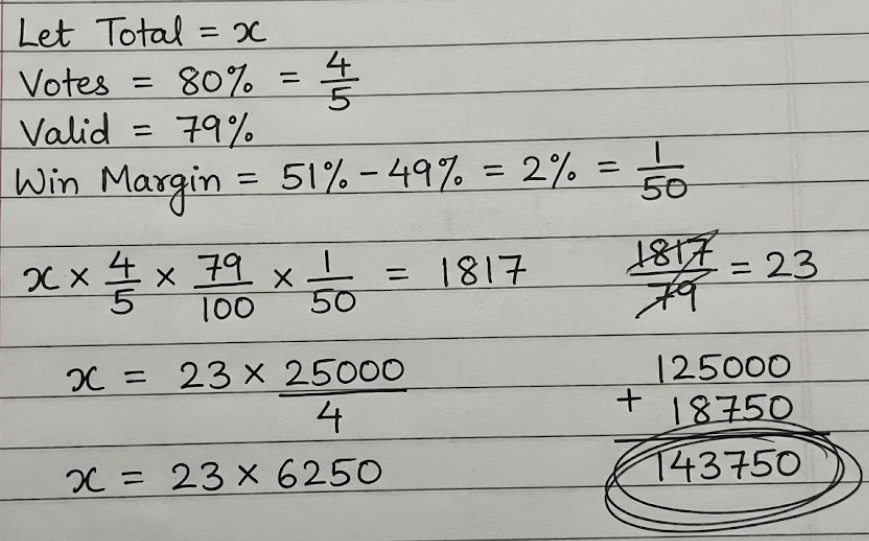 Let Total = x
Votes = 80% = 4/5
Valid = 79%
Win Margin = 51% - 49% = 2% = 1/50
x × 4/5 × 79/100 × 1/50 = 1817
1817/79 = 23
x = 23 × 25000/4
x = 23 × 6250
125000
+ 18750
143750